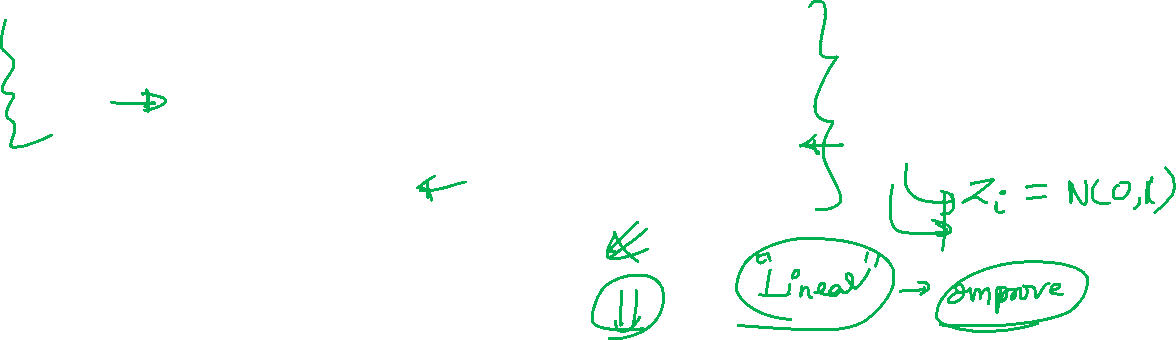 Zᵢ = N(0,1)
11 "Linear" → improve